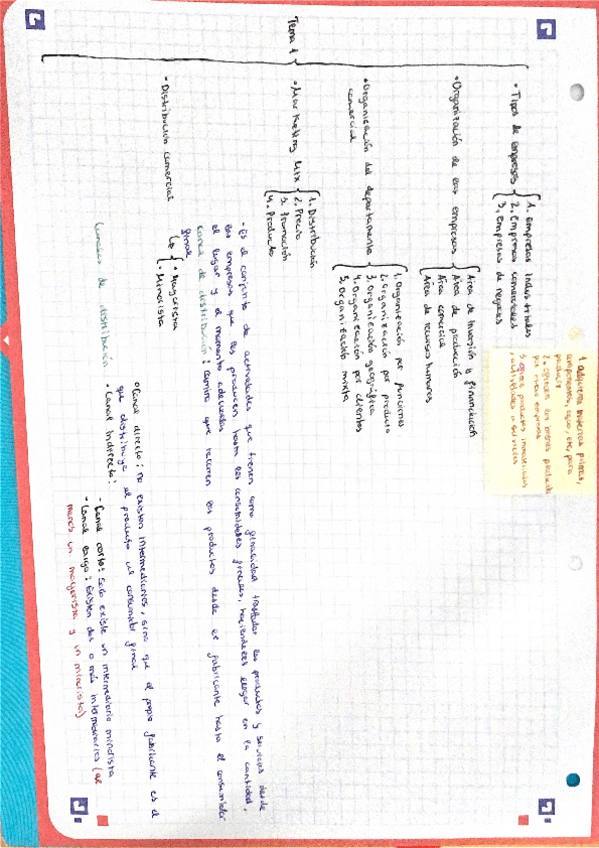 Tema 1
• Tipos de empresas
1. Empresas industriales
2. Empresas comerciales
3. Empresas de
1. adquieren materias primas,
componentes, etc, para
producir
2.
por otras empresas
3.
• Organización de las empresas
Área de inversión y financiación
Área de producción
Área comercial
Área de recursos humanos
• Organización del departamento
comercial
1. Organización por funciones
2. Organización por producto
3. Organización geográfica
4. Organización por clientes
5. Organización mixta
• Marketing Mix
1. Distribución
2. Precio
3. Promoción
4. Producto
• Distribución comercial
- Es el conjunto de actividades que tienen como finalidad trasladar los productos y servicios desde
las empresas que los producen hasta los consumidores finales, haciéndoles llegar en la cantidad,
el lugar y el momento adecuados
canal de distribución: camino que recorren los productos desde el fabricante hasta el consumidor
final
• Mayorista
• Minorista
canales de distribución
• Canal directo: no existen intermediarios, sino que el propio fabricante es el
que distribuye el producto al consumidor final
• Canal indirecto:
- Canal corto: solo existe un intermediario minorista
- Canal largo: Existen dos o más intermediarios (al
menos un mayorista y un minorista)